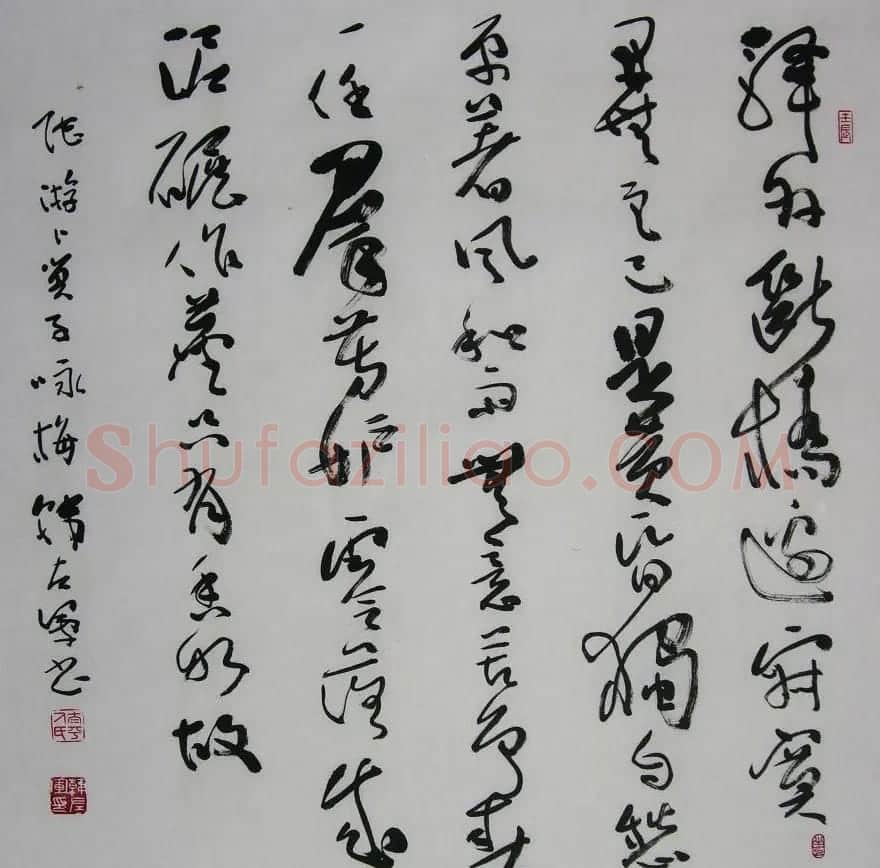 驛外斷橋邊寂寞
開無主已是黃昏獨自愁
更著風和雨無意苦爭春
一任羣芳妒零落成
泥碾作塵只有香如故
陸游卜算子咏梅 韓左軍書
壬辰
韓左軍印
Shufaziliao.COM